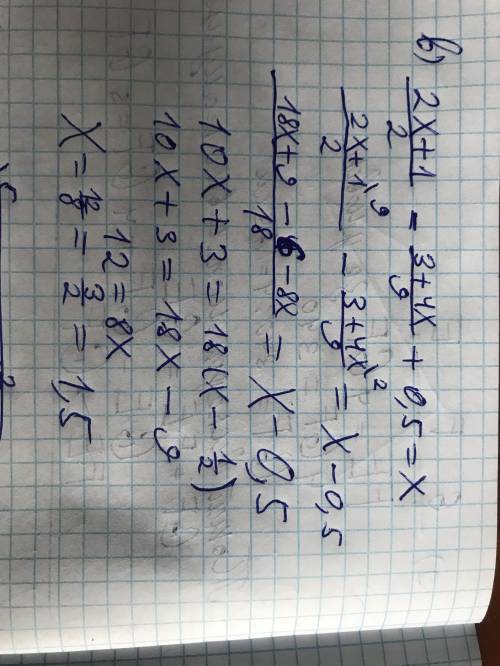 в) (2x+1)/2 - (3+4x)/9 + 0,5 = x
(2x+1\9)/2 - (3+4x\2)/9 = x - 0,5
(18x+9-6-8x)/18 = x - 0,5
10x + 3 = 18(x - 1/2)
10x + 3 = 18x - 9
12 = 8x
x = 12/8 = 3/2 = 1,5